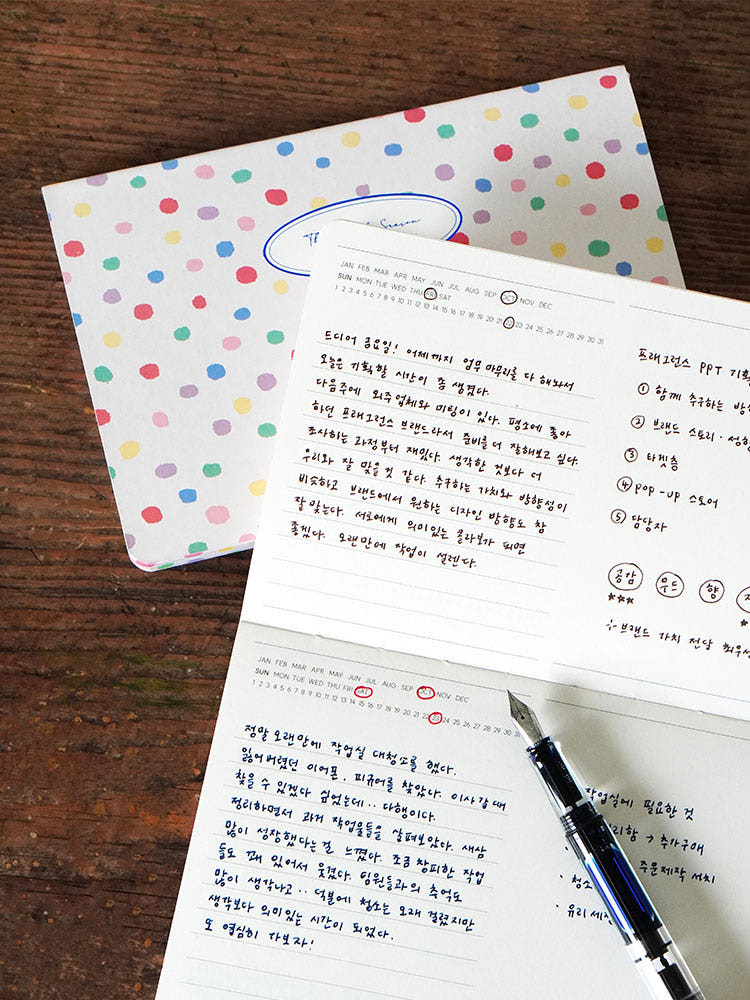 JAN FEB MAR APR MAY JUN JUL AUG SEP OCT NOV DEC
SUN MON TUE WED THU FRI SAT
1 2 3 4 5 6 7 8 9 10 11 12 13 14 15 16 17 18 19 20 21 22 23 24 25 26 27 28 29 30 31
드디어 금요일! 어제까지 업무 마무리를 다 해놔서
오늘은 기획할 시간이 좀 생겼다.
다음주에 외주업체와 미팅이 있다. 평소에 좋아
하던 프래그런스 브랜드라서 준비를 더 잘해보고 싶다.
조사하는 과정부터 재밌다. 생각한 것보다 더
우리와 잘 맞을 것 같다. 추구하는 가치와 방향성이
비슷하고 브랜드에서 원하는 디자인 방향도 참
잘 맞는다. 서로에게 의미있는 콜라보가 되면
좋겠다. 오랜만에 작업이 설렌다.
프래그런스 PPT
① 함께 추구하는
② 브랜드 스토리·
③ 타겟층
④ pop-up 스토어
⑤ 담당자
공감 무드 향
***
브랜드 가치 전달
JAN FEB MAR APR MAY JUN JUL AUG SEP OCT NOV DEC
SUN MON TUE WED THU FRI SAT
1 2 3 4 5 6 7 8 9 10 11 12 13 14 15 16 17 18 19 20 21 22 23 24 25 26 27 28 29 30
정말 오랜만에 작업실 대청소를 했다.
잃어버렸던 이어폰, 피규어를 찾았다. 이사갈 때
찾을 수 있겠다 싶었는데.. 다행이다.
정리하면서 과거 작업물들을 살펴보았다. 새삼
많이 성장했다는 걸 느꼈다. 조금 창피한 작업
들도 꽤 있어서 웃겼다. 팀원들과의 추억도
많이 생각나고.. 덕분에 청소는 오래 걸렸지만
생각보다 의미있는 시간이 되었다.
또 열심히 가보자!
작업실에 필요한 것
→ 추가구매
주문제작 서치
· 청소
· 유리